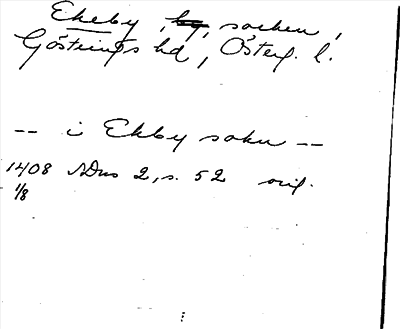 Ekeby, socken,
Göstrings hd, Österg. l.
-- i Ekby sokn --
1408 SDns 2, s. 52 orig.
1/8